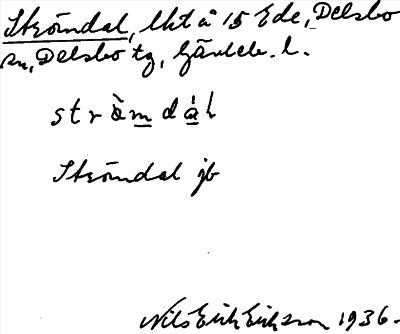 Strömdal, lht å 15 Ede, Delsbo
sn, Delsbo tg, Gävleb. l.
strö̀mdál
Strömdal jb
Nils Erik Eriksson 1936.